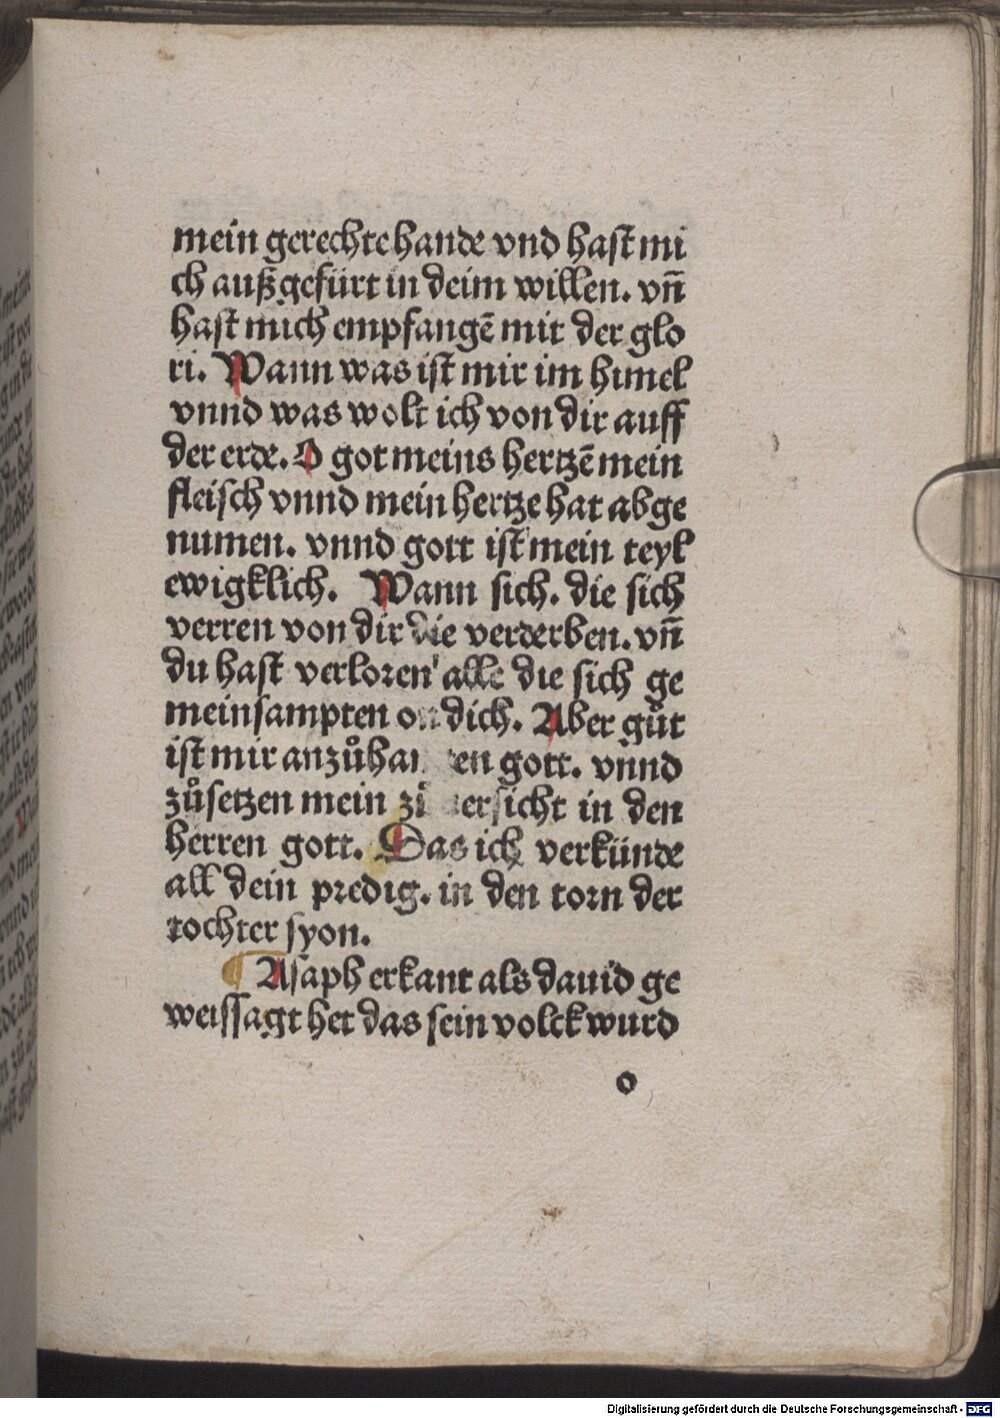 mein gerechte hande vnd hast mi
ch außgefürt in deim willen. vn̄
hast mich empfangē mit der glo
ri. Wann was ist mir im himel
vnnd was wolt ich von dir auff
der erde. O got meins hertzē mein
fleisch vnnd mein hertze hat abge
numen. vnnd gott ist mein teyl
ewigklich. Wann sich. die sich
verren von dir die verderben. vn̄
du hast verloren alle die sich ge
meinsampten on dich. Aber gůt
ist mir gott. vnnd
zůsetzen mein in den
herren gott. Das ich verkünde
all dein predig. in den torn der
tochter syon.
¶ Asaph erkant als dauid ge
weissagt het das sein volck wurd
o
Digitalisierung gefördert durch die Deutsche Forschungsgemeinschaft - DFG